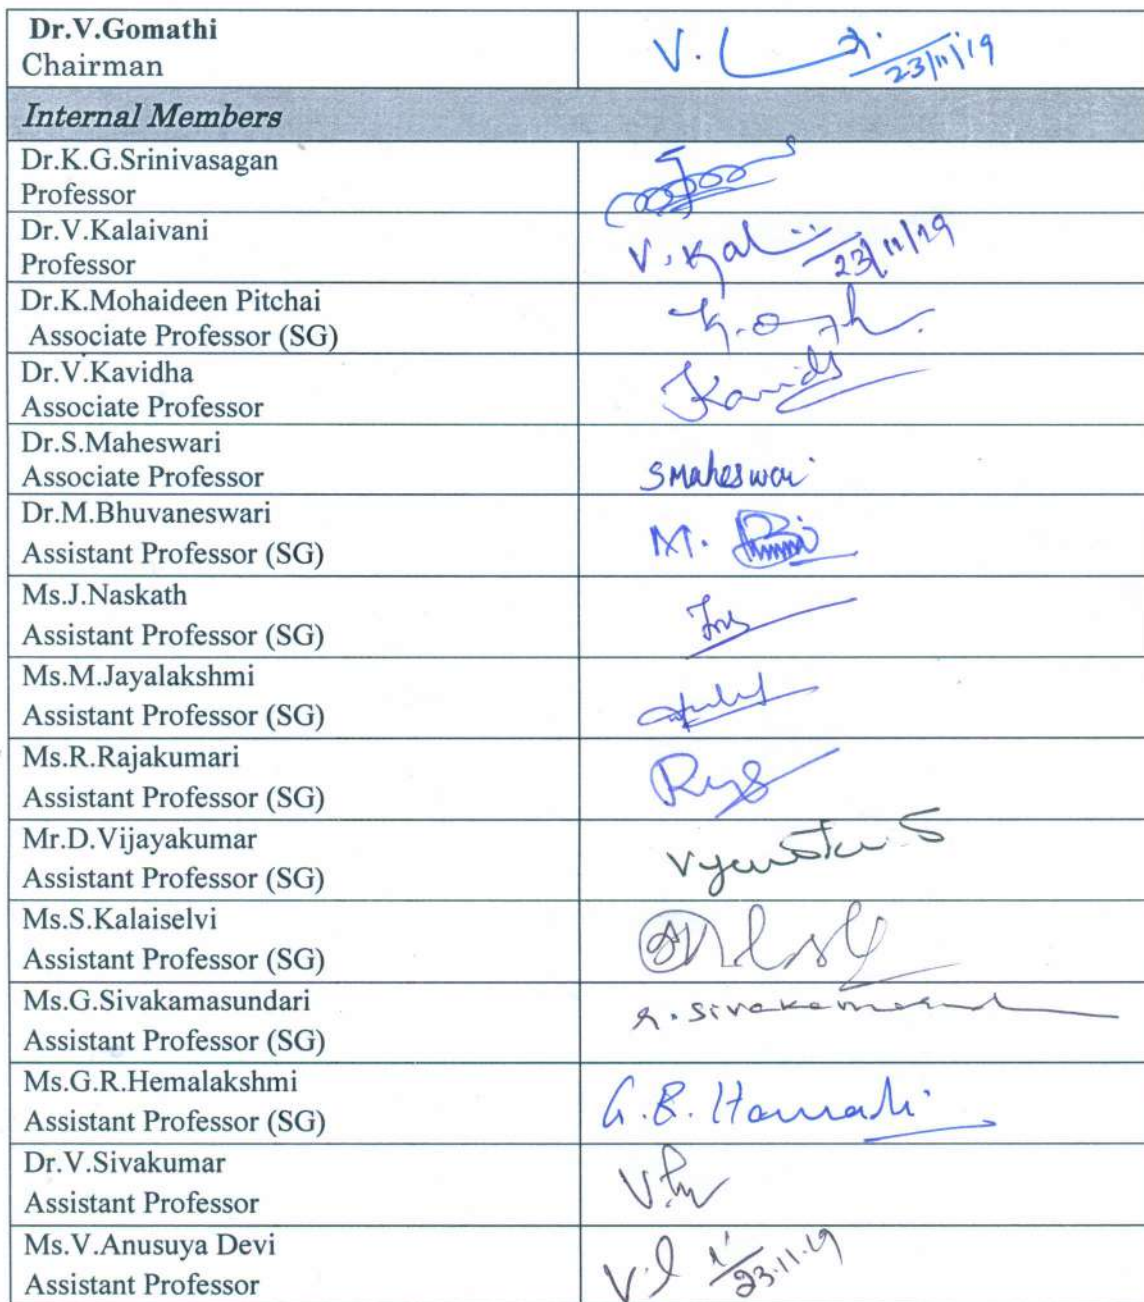 Dr.V.Gomathi
Chairman
23/11/19
Internal Members
Dr.K.G.Srinivasagan
Professor
Dr.V.Kalaivani
Professor
V. Kal
23/11/19
Dr.K.Mohaideen Pitchai
Associate Professor (SG)
Dr.V.Kavidha
Associate Professor
Dr.S.Maheswari
Associate Professor
SMaheswari
Dr.M.Bhuvaneswari
Assistant Professor (SG)
M.
Ms.J.Naskath
Assistant Professor (SG)
Ms.M.Jayalakshmi
Assistant Professor (SG)
Ms.R.Rajakumari
Assistant Professor (SG)
Mr.D.Vijayakumar
Assistant Professor (SG)
Ms.S.Kalaiselvi
Assistant Professor (SG)
Ms.G.Sivakamasundari
Assistant Professor (SG)
Ms.G.R.Hemalakshmi
Assistant Professor (SG)
Dr.V.Sivakumar
Assistant Professor
Ms.V.Anusuya Devi
Assistant Professor
23.11.19